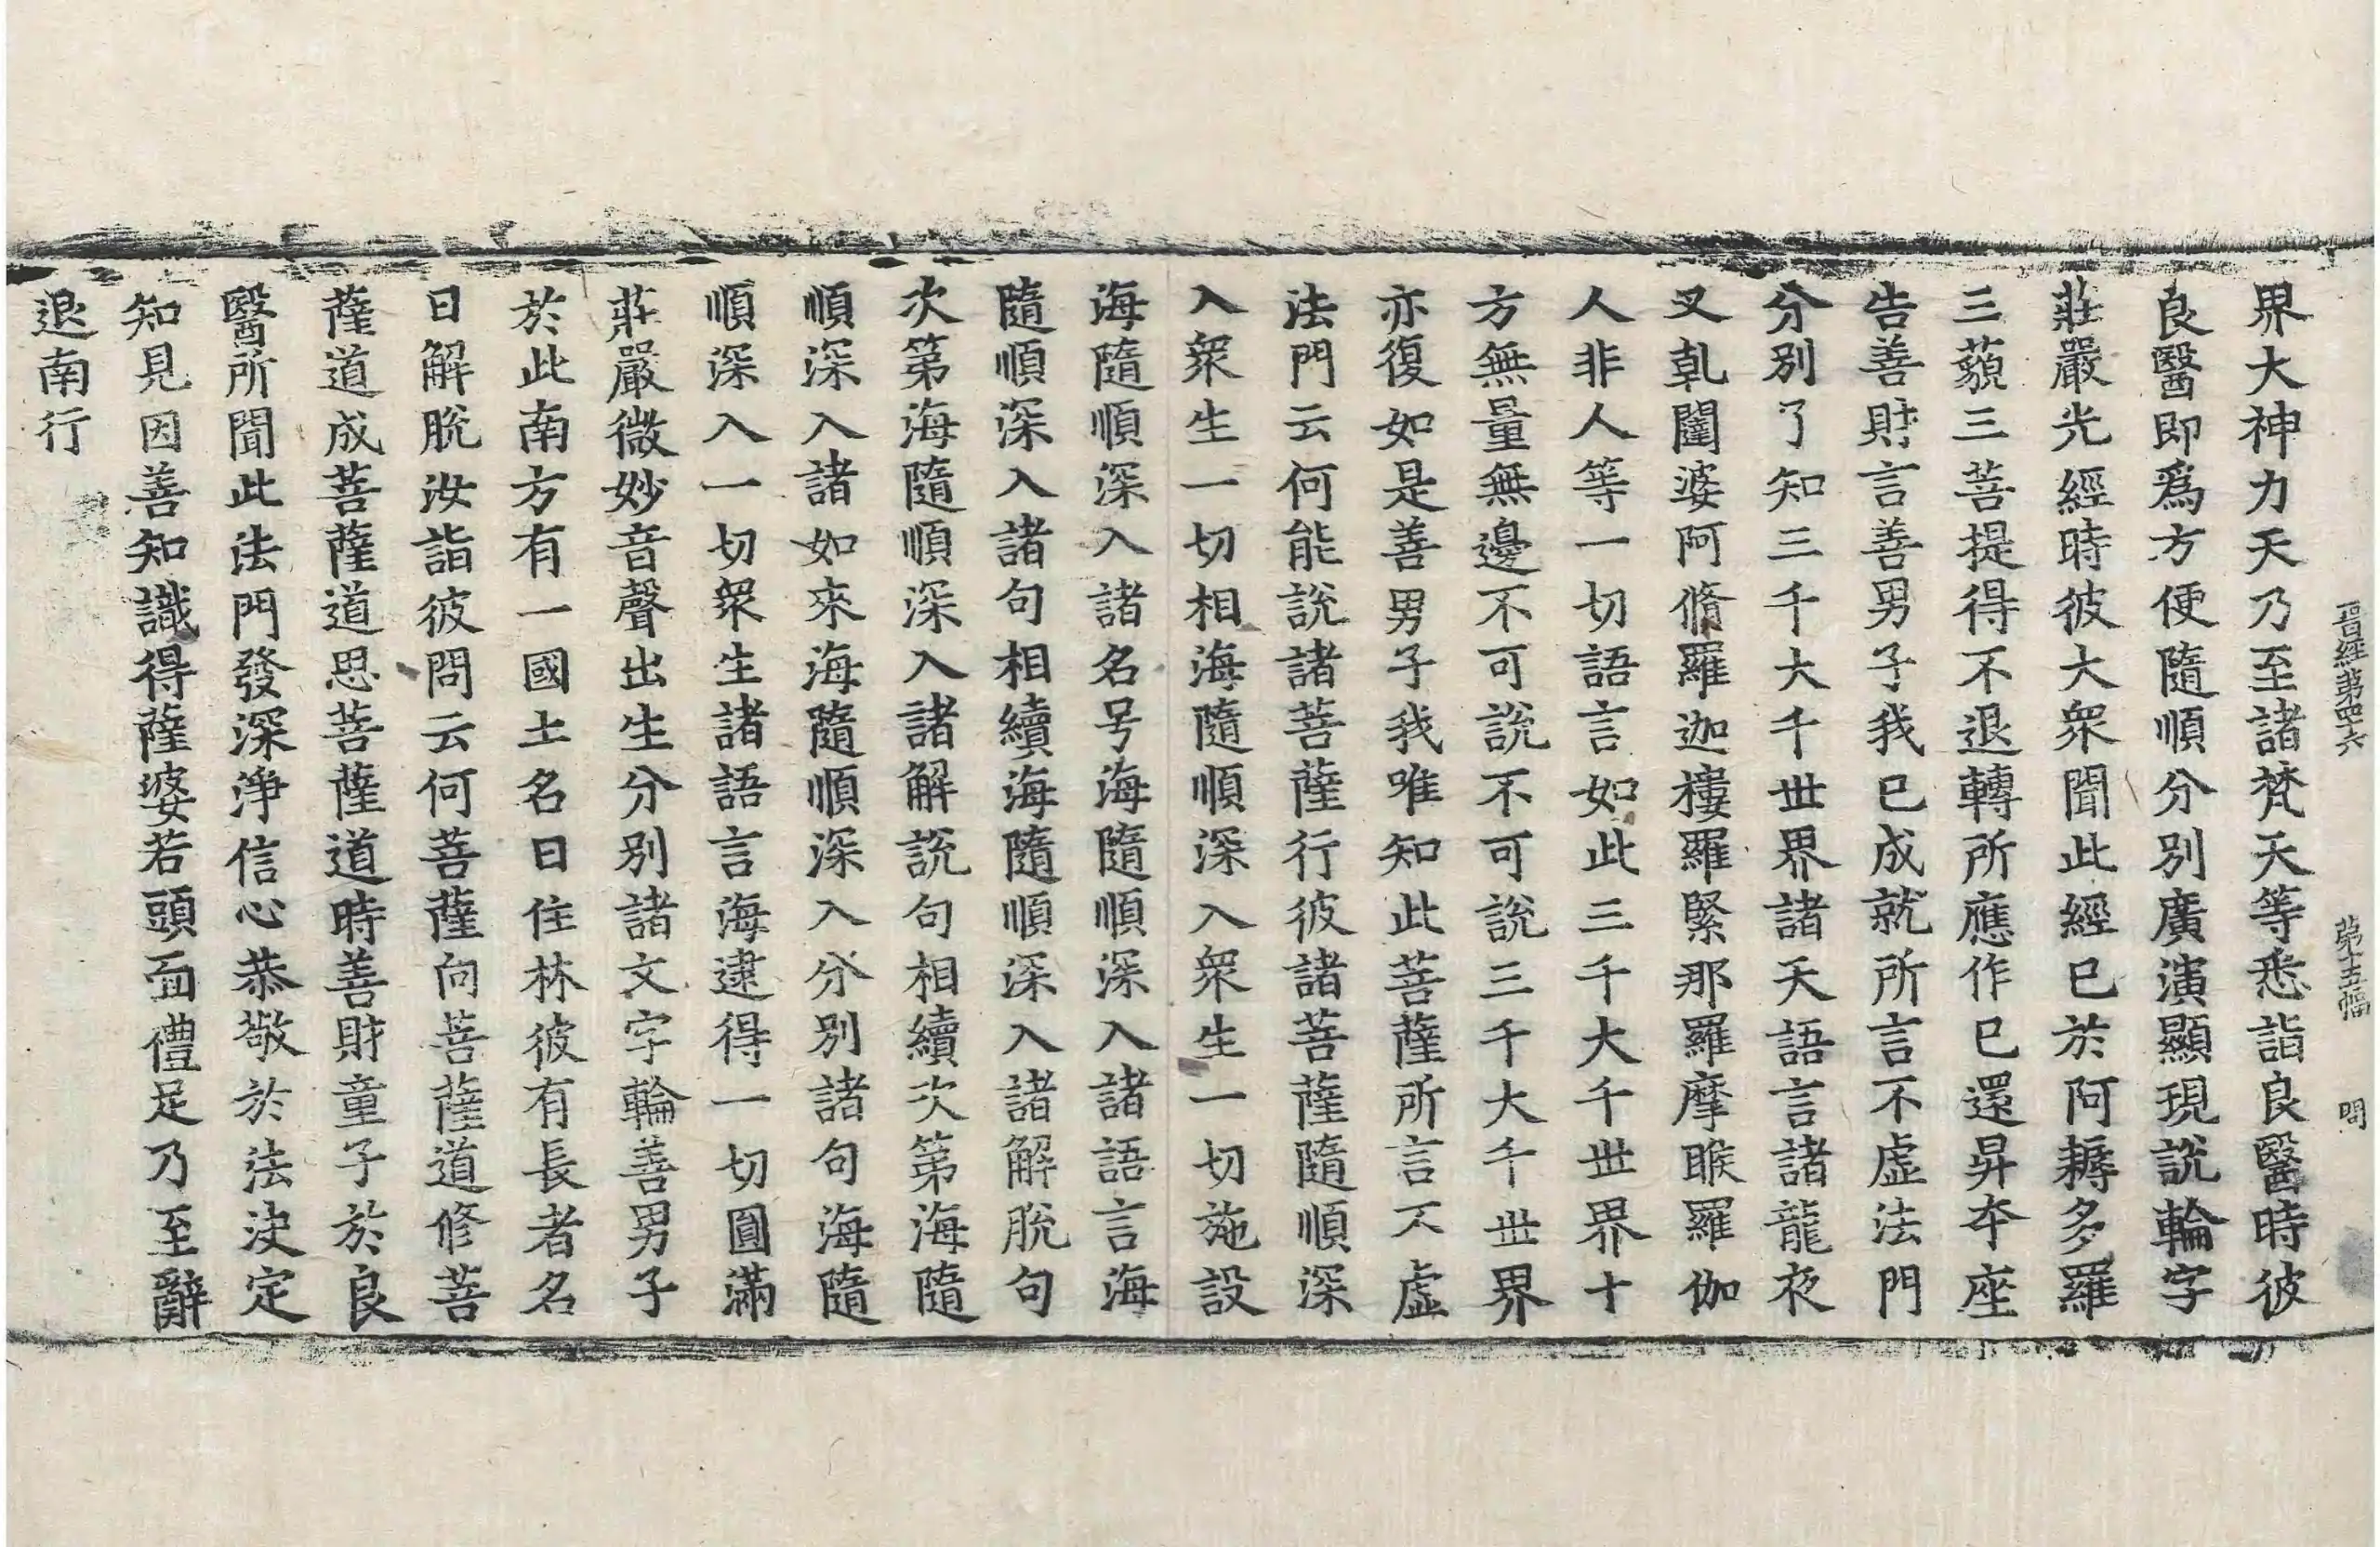 晉經第四十六　第十五幅　問
界大神力天乃至諸梵天等悉詣良醫時彼
良醫即爲方便隨順分別廣演顯現說輪字
莊嚴光經時彼大衆聞此經已於阿耨多羅
三藐三菩提得不退轉所應作已還昇夲座
告善財言善男子我已成就所言不虛法門
分別了知三千大千世界諸天語言諸龍夜
叉乹闥婆阿脩羅迦樓羅緊那羅摩睺羅伽
人非人等一切語言如此三千大千世界十
方無量無邊不可說不可說三千大千世界
亦復如是善男子我唯知此菩薩所言不虛
法門云何能說諸菩薩行彼諸菩薩隨順深
入衆生一切相海隨順深入衆生一切施設
海隨順深入諸名号海隨順深入諸語言海
隨順深入諸句相續海隨順深入諸解脫句
次第海隨順深入諸解說句相續次第海隨
順深入諸如來海隨順深入分別諸句海隨
順深入一切衆生諸語言海逮得一切圓滿
莊嚴微妙音聲出生分別諸文字輪善男子
於此南方有一國土名曰住林彼有長者名
曰解脫汝詣彼問云何菩薩向菩薩道修菩
薩道成菩薩道思菩薩道時善財童子於良
醫所聞此法門發深淨信心恭敬於法決定
知見因善知識得薩婆若頭面禮足乃至辭
退南行